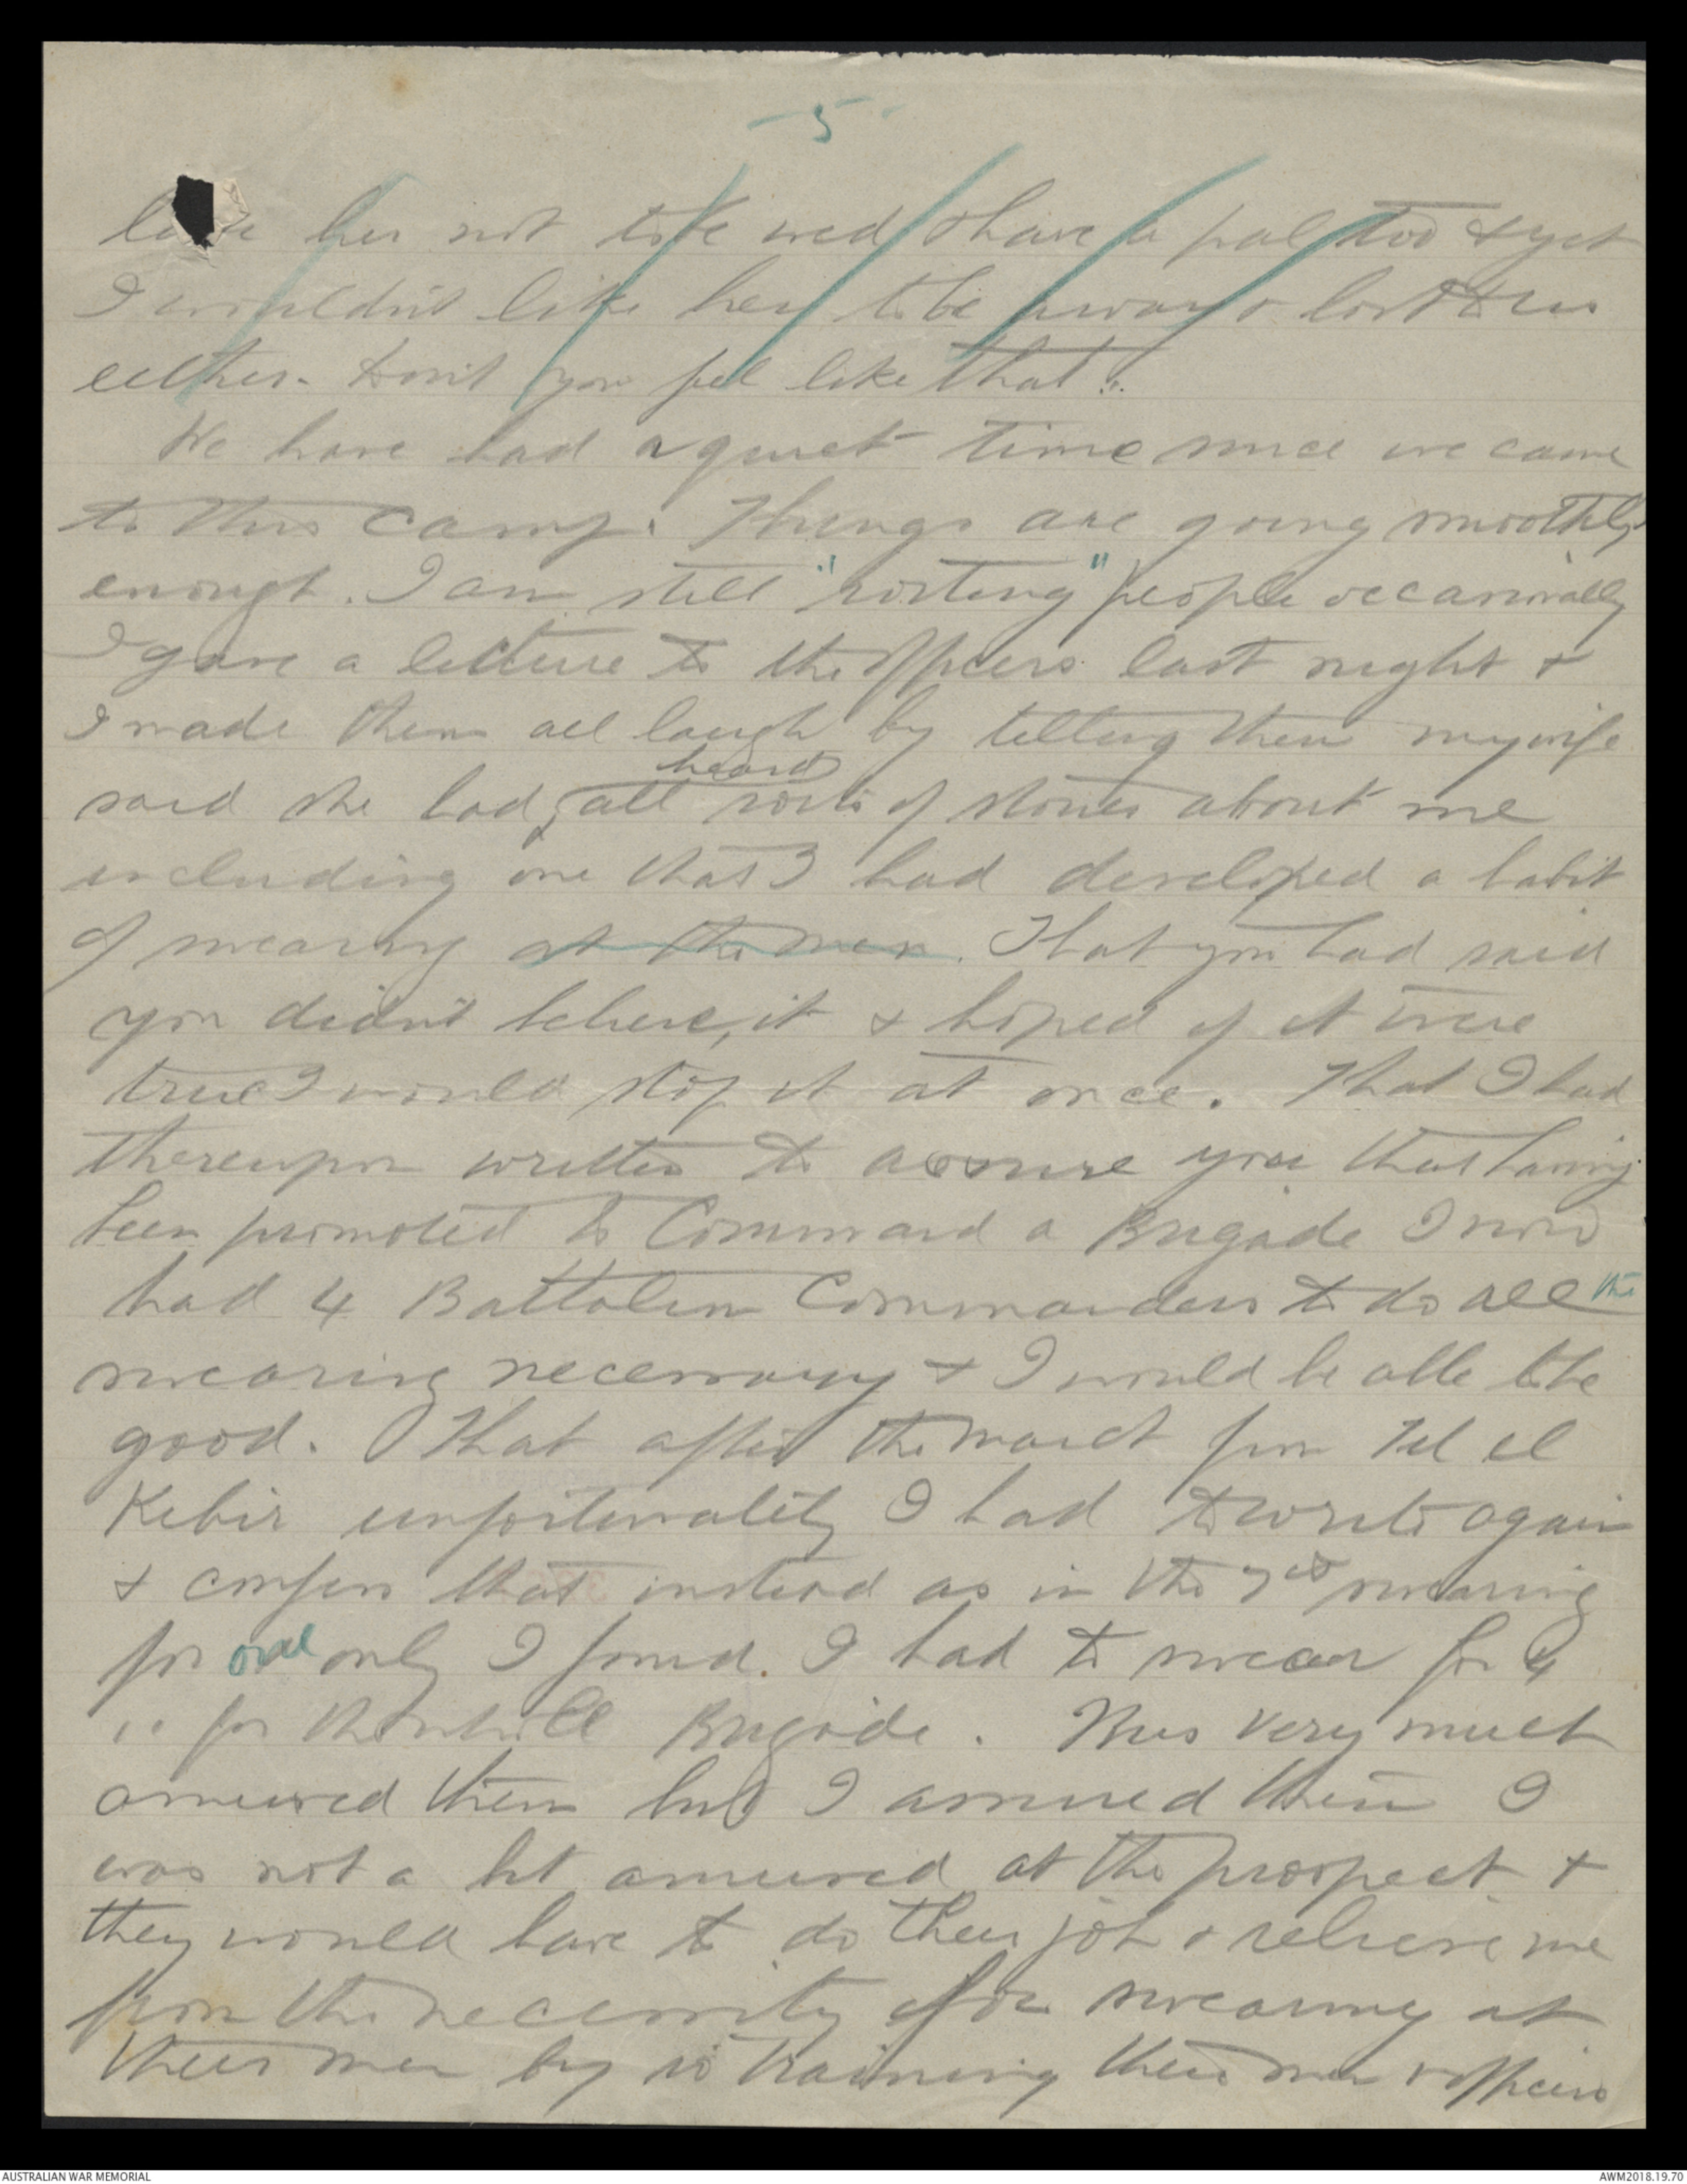 - 5 -
her not to be wed & have a pal too & yet
I wouldn't like her to be away & lost to us
either. Don't you feel like that?
We have had a quiet time since we came
to this camp. Things are going smoothly
enough. I am still "rorting" people occasionally
I gave a lecture to the Officers last night &
I made them all laugh by telling them my wife
said she had heard all sorts of stories about me
including one that I had developed a habit
of swearing at the men. That you had said
you didn't believe it & hoped if it were
true I would stop it at once. That I had
thereupon written to assure you that having
been promoted to Command a Brigade I now
had 4 Battalion Commanders to do all the
swearing necessary & I would be able to be
good. That after the march from Tel el
Kebir unfortunately I had to write again
& confess that instead as in the 7th swearing
for one only I found I had to swear for 4
" for the whole Brigade. This very much
amused them but I assured them I
was not a bit amused at the prospect &
they would have to do their job & relieve me
from the necessity of swearing at
their men by so training their men & officers
AUSTRALIAN WAR MEMORIAL
AWM2018.19.70